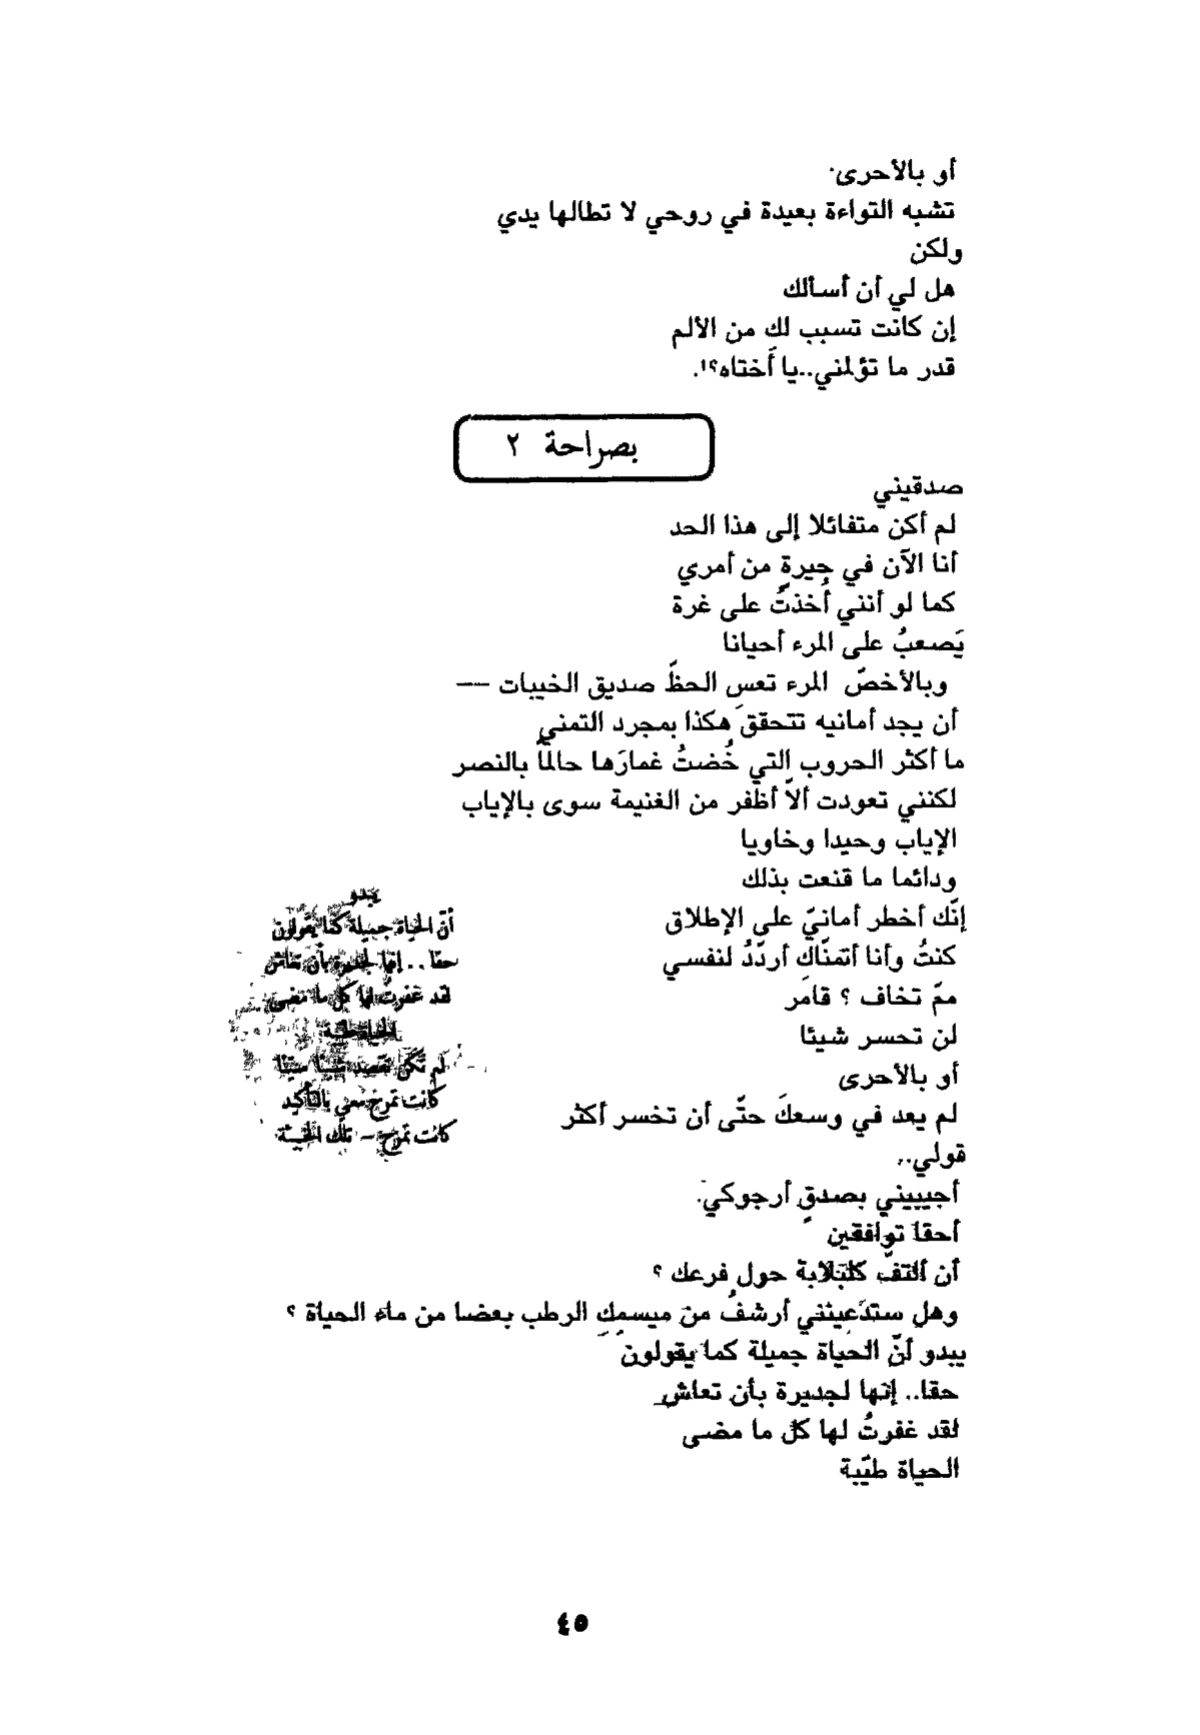 أو بالأحرى
تشبه التواءة بعيدة في روحي لا تطالها يدي
ولكن
هل لي أن أسألك
إن كانت تسبب لك من الألم
قدر ما تؤلمني..يا أَختاه؟!.
بصراحة ٢
صدقيني
لم أكن متفائلا إلى هذا الحد
أنا الآن في حِيرةٍ من أمري
كما لو أنني أُخذتُ على غرة
يَصعبُ على المرء أحيانا
وبالأخصّ المرء تعس الحظّ صديق الخيبات —
أن يجد أمانيه تتحققَ هكذا بمجرد التمني
ما أكثر الحروب التي خُضتُ غمارَها حالماً بالنصر
لكنني تعودت ألاّ أظفر من الغنيمة سوى بالإياب
الإياب وحيدا وخاويا
ودائما ما قنعت بذلك
إنّك أخطر أمانيّ على الإطلاق
كنتُ وأنا أتمنّاك أردّدُ لنفسي
ممّ تخاف ؟ قامَر
لن تحسر شيئا
أو بالأحرى
لم يعد في وسعكَ حتّى أن تخسر أكثر
قولي..
أجيبيني بصدقٍ أرجوكي.
أحقا توافقين
أن ألتفّ كلبلابة حول فرعك ؟
وهل ستدَعينني أرشفُ من ميسمكِ الرطب بعضا من ماء الحياة ؟
يبدو أنّ الحياة جميلة كما يقولون
حقا.. إنها لجديرة بأن تعاش
لقد غفرتُ لها كل ما مضى
الحياة طيّبة
يبدو
أنّ الحياة جميلة كما يقولون
حقا.. إنها لجديرة بأن تعاش
لقد غفرت لها كل ما مضى
الحياة طيبة
لم تكن تقصد شيئا سيئا
كانت تمزح معي بالتأكيد
كانت تمزح – تلك الخبيثة
٤٥